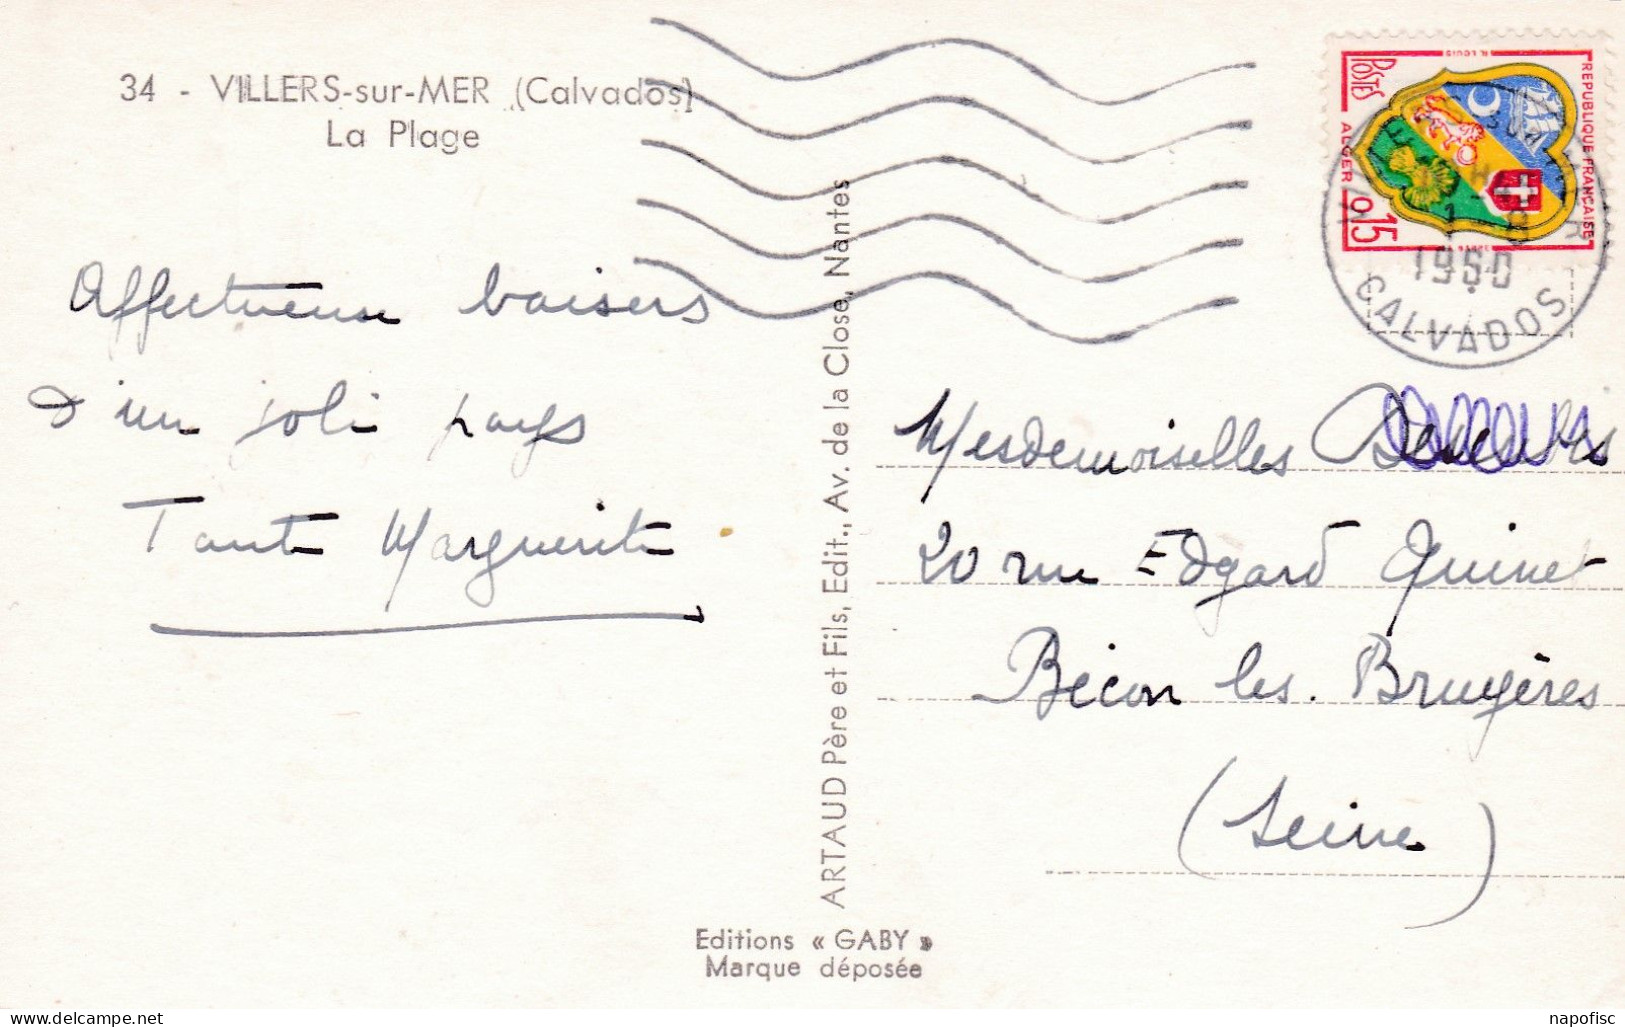 34 - VILLERS-sur-MER (Calvados)
La Plage
Affectueux baisers
d'un joli pays
Tante Marguerite
ARTAUD Père et Fils, Edit., Av. de la Close, Nantes
Editions « GABY »
Marque déposée
REPUBLIQUE FRANÇAISE
POSTES
ALGER
0,15
R. LOUIS
1960
CALVADOS
Mesdemoiselles
20 rue Edgard Quinet
Bécon les. Bruyères
(Seine)
napofisc
delcampe.net